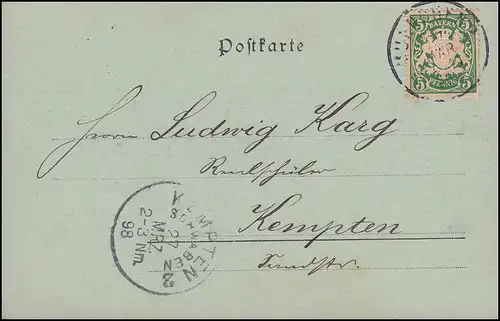 Postkarte
5 BAYERN 5
5 PFENNIG 5
Herrn Ludwig Karg
Realschüler
Kempten
KEMPTEN
SCHWABEN
27
MRZ.
2-3 Nm.
98